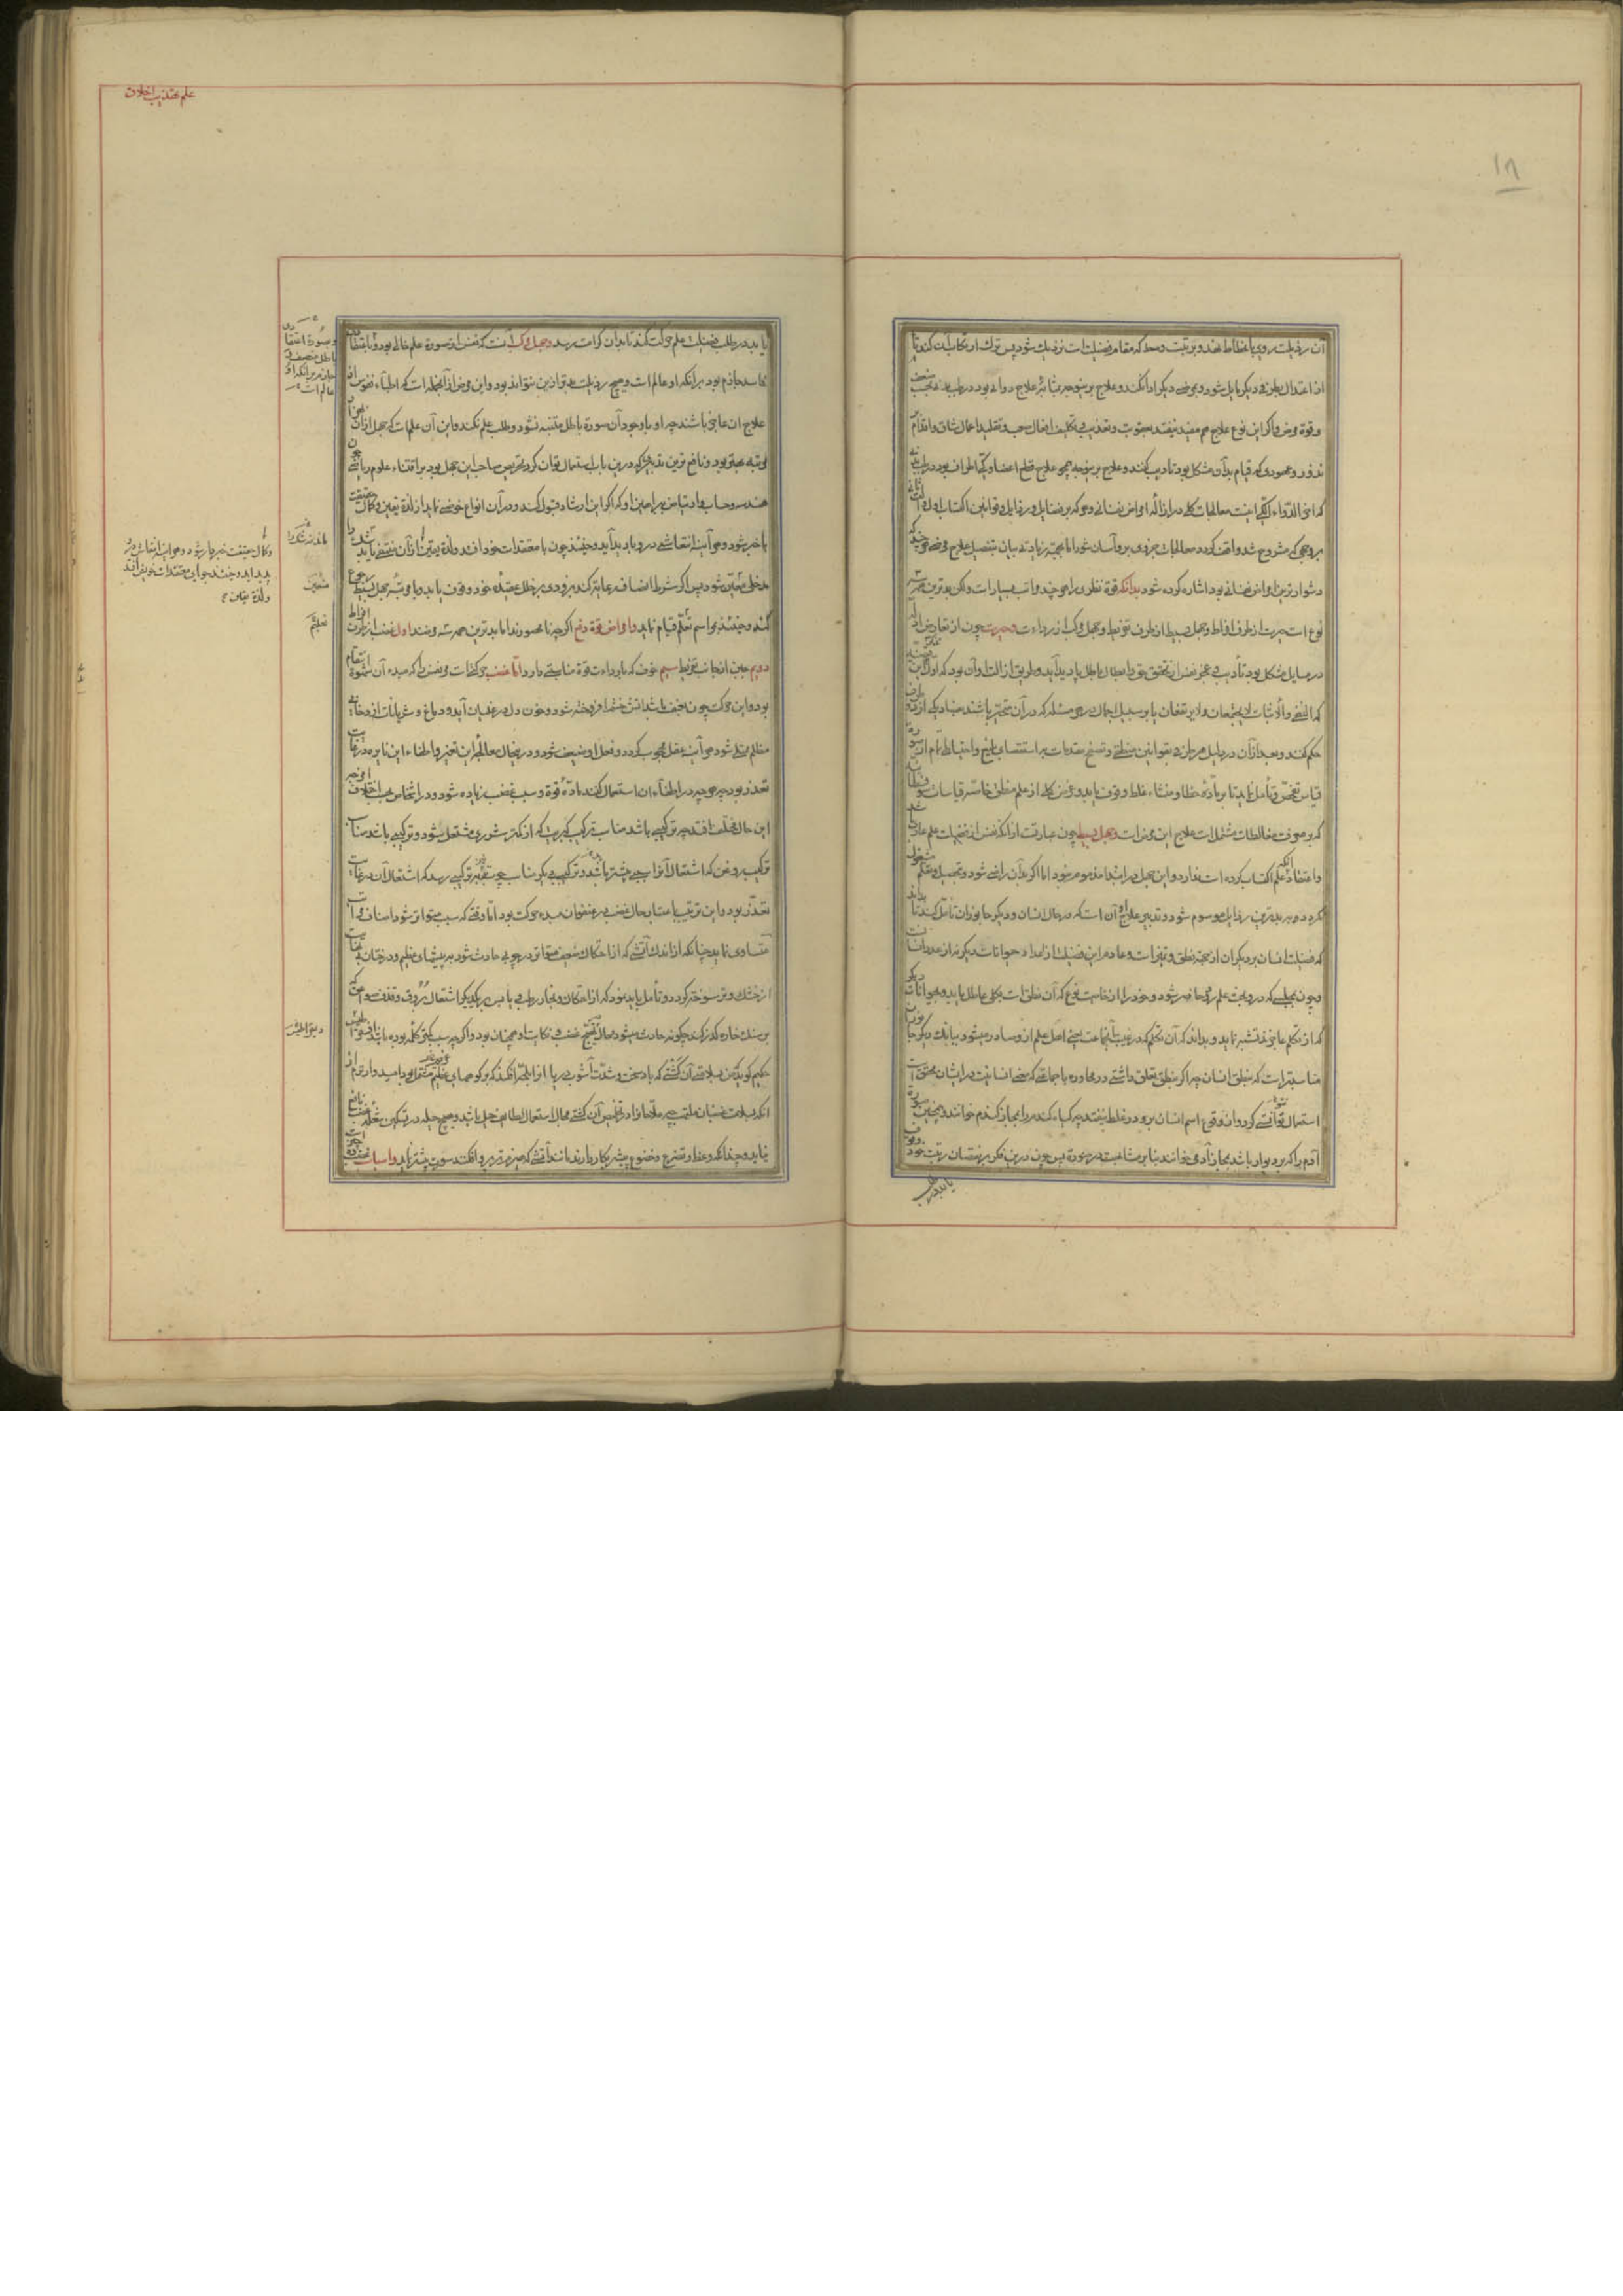 ان رذیلت روی بانحطاط نهد و برتبت وحد که مقام فضیلت است نزدیك شود پس ترك ارتکاب آن کند تا
از اعتدال بطرف دیگر مایل شود و بمرضی دیگر ادا نکند و علاج برین وجه بمثابۀ علاج دوائی بود در طب
وقوۀ مرض و اگر این نوع علاج هم مفید نیفتد بعقوبت و تعذیب و تکلیف افعال صعب و تقلید اعمال شاق واقدام بر
نذور و عهودی که قیام بدان مشکل بود تادیب کنند و علاج برین وجه همچو علاج قطع اعضا و کی اطراف بود در طب
که آخر الدواء الکی اینست معالجات کلی در ازالۀ امراض نفسانی و هر که بر فضایل و رذایل و قوانین اکتساب اول
بروجهی که مشروح شد واقف گردد معالجات جزوی برو آسان شود اما بجهة زیادت بیان بتفصیل علاج مرضی چند که
دشوارترین امراض نفسانی بود اشاره کرده شود بدانکه قوۀ نظری را هر چند مراتب بسیار است ولکن بدترین همه سه
نوع است حیرت از طرف افراط و جهل بسیط از طرف تفریط و جهل مرکب از رداءت و حیرت چون از تعارض ادله
در مسایل مشکل بود تأدیب عجز نفس از تحقیق حق و ابطال باطل پدید آید و طریق ازالت او آن بود که اول این قضیه
که النفی والاثبات لا یجتمعان ولا یرتفعان یا بر سبیل اجمال در هر مسئله که در آن متحیر باشد بفساد یکی از دو طرف
حکم کند و بعد از آن در دلیل هر طرف بقوانین منطقی و تصفح مقدمات بر استقصای بلیغ و احتیاط تمام از صورة
قیاس تفحص و تأمل نماید تا بر مادّۀ خطا و منشاء غلط وقوف یابد و غرض کلی از علم منطق خاصه قیاسات سوفسطائیه
که بر معرفت مغالطات مشتمل است علاج این مرض است و جهل بسیط چون عبارتست از آنکه نفس از فضیلت علم عاری باشد
و اعتقاد آنکه علم اکتساب کرده است ندارد و این جهل در ابتدا مذموم نبود اما اگر بدان راضی شود و بتحصیل و تعلم مشغول
نگردد بدترین رذایل موسوم شود و تدبیر علاج او آن است که در حال انسان و دیگر جانوران تأمل کند تا
که فضیلت انسان بر دیگران از جهة نطق و تمیز است و عادم این فضیلت از اعداد حیوانات دیگر نه از عدد انسان
و چون بمجلسی که در و بحث علم رود حاضر شود و خود را از خاصیت نوع که آن نطق است بکلی عاطل یابد و بحیوانات دیگر
که از تکلم عاجز اند تشبه نماید و بداند که آن تکلم که در غیبت آن جماعت یعنی اهل علم ازو صادر میشود ببانك دیگر جانوران
مناسبتر است که بنطق انسان چه اگر بنطق تعلق داشتی در محاوره با جماعتی که معنی انسانیت در ایشان محقق است
استعمال توانستی کرد و از وقوع اسم انسان برو در غلط نیفتد چه گیاه گندم را بمجاز گندم خوانند و همچنین صورة
آدم را که بر دیوار باشد بمجاز آدمی خوانند بنابر مشابهت در صورة پس چون درین فکر بر نقصان رتبت خود وقوف
یابد در طلب
علم تهذیب اخلاق
یابد در طلب فضیلت علم حرکت کند تا بدان کرامت رسد و جهل مرکب آنست که نفس از صورۀ علم خالی بود و باعتقاد
فاسد جازم بود بر آنکه او عالم است و هیچ رذیلت بدتر ازین نتواند بود و این مرض از آنجمله است که اطباء نفوس از
علاج ان عاجز باشند چه او با وجود آن صورة باطل متنبه نشود و طلب علم نکند و این آن علم است که جهل از آن
مرتبه بهتر بود و نافع ترین تدبیری که درین باب استعمال توان کرد تحریص صاحب این جهل بود بر اقتناء علوم ریاضی چون
هندسه و حساب و ارتیاض ببراهین او که اگر این ارشاد قبول کند و در آن انواع خوضی نماید از لذة یقین و کمال حقیقت
باخبر شود و هر آینه انتعاشی در و پدید آید و حینئذ چون با معتقدات خود افتد و لذة یقین از آن منتفی یابد شك را
مدخلی متعین شود پس اگر شرط انصاف رعایت کند بزودی بر خلل عقیدۀ خود وقوف یابد و بمرتبۀ جهل بسیط رجوع
کند و حینئذ بمراسم تعلم قیام نماید و امراض قوۀ دفع اگر چه نامحصورند اما بدترین همه سه مرضند اول غضب از طرف افراط
دویم جبن از جانب تفریط سیم خوف که با رداءت قوة مناسبتی دارد و اما غضب حرکتی است مر نفس را که مبدء آن شهوة انتقام
بود و این حرکت چون بعنف باشد آتش خشم افروخته شود و خون دل در غلیان آید و دماغ و شریانات از دخانی
مظلم ممتلی شود هر آینه عقل محجوب گردد و فعل او ضعیف شود و در چنین حال معالجۀ این تغییر و اطفاء این نایره در غایت
تعذر بود چه هر چه در اطفاء ان استعمال کنند مادّۀ قوة و سبب غضب زیاده شود و در اشخاص بحسب اختلاف امزجه
این حال مختلف افتد چه ترکیبی باشد مناسب ترکیب کبریت که از کمتر شرری مشتعل شود و ترکیبی باشد مناسب
ترکیب روغن که اشتعال آنرا سببی بیشتر باید و ترکیبی دیگر مناسب چوب
تعذر بود و این ترتیب باعتبار حال غضب در عنفوان مبدء حرکت بود اما وقتی که سبب متواتر شود اصناف مراتب
متساوی نماید چنانکه از اندك آتشی که از احتکاك ضعیف متواتر در چوبی حادث شود بیشهای عظیم و درختان
از خشك و تر سوخته گردد و تأمل باید نمود که از احتکاك دخان و بخار رطب و یابس بر یکدیگر اشتعال بروق و قذف صواعق که
بر سنك خاره گذر کند چگونه حادث میشود حال تهیج غضب و نکایت او همچنان بود و اگر چه سبب کمتر کلمه بوده باشد
حکیم گوید من بسلامتی آن کشتی که باد سخت و شدت آشوب دریا او را بلجۀ افکند که بر کوههای عظیم مشتمل بود امیدوارترم از
انکه بسلامت غضبان ملتهب چه ملاحانرا در تخلیص آن کشتی مجال استعمال لطایف حیل باشد و هیچ حیله در تسکین شعلۀ غضب نافع
نیاید و چندانکه وعظ و تضرع و خضوع بیشتر بکار دارند مانند آتشی که هیزم بر و افکنند سورت بیشتر نماید و اسباب غضب
و صورة اعتقاد
باطل متصف و
جازم بر آنکه او
عالم است
و کمال حقیقت خبردار شود و هر اینه انتعاش در
پدید اید و حینئذ چون با معتقدات خویش افتد
ولذة یقین
متعین
تعلیم